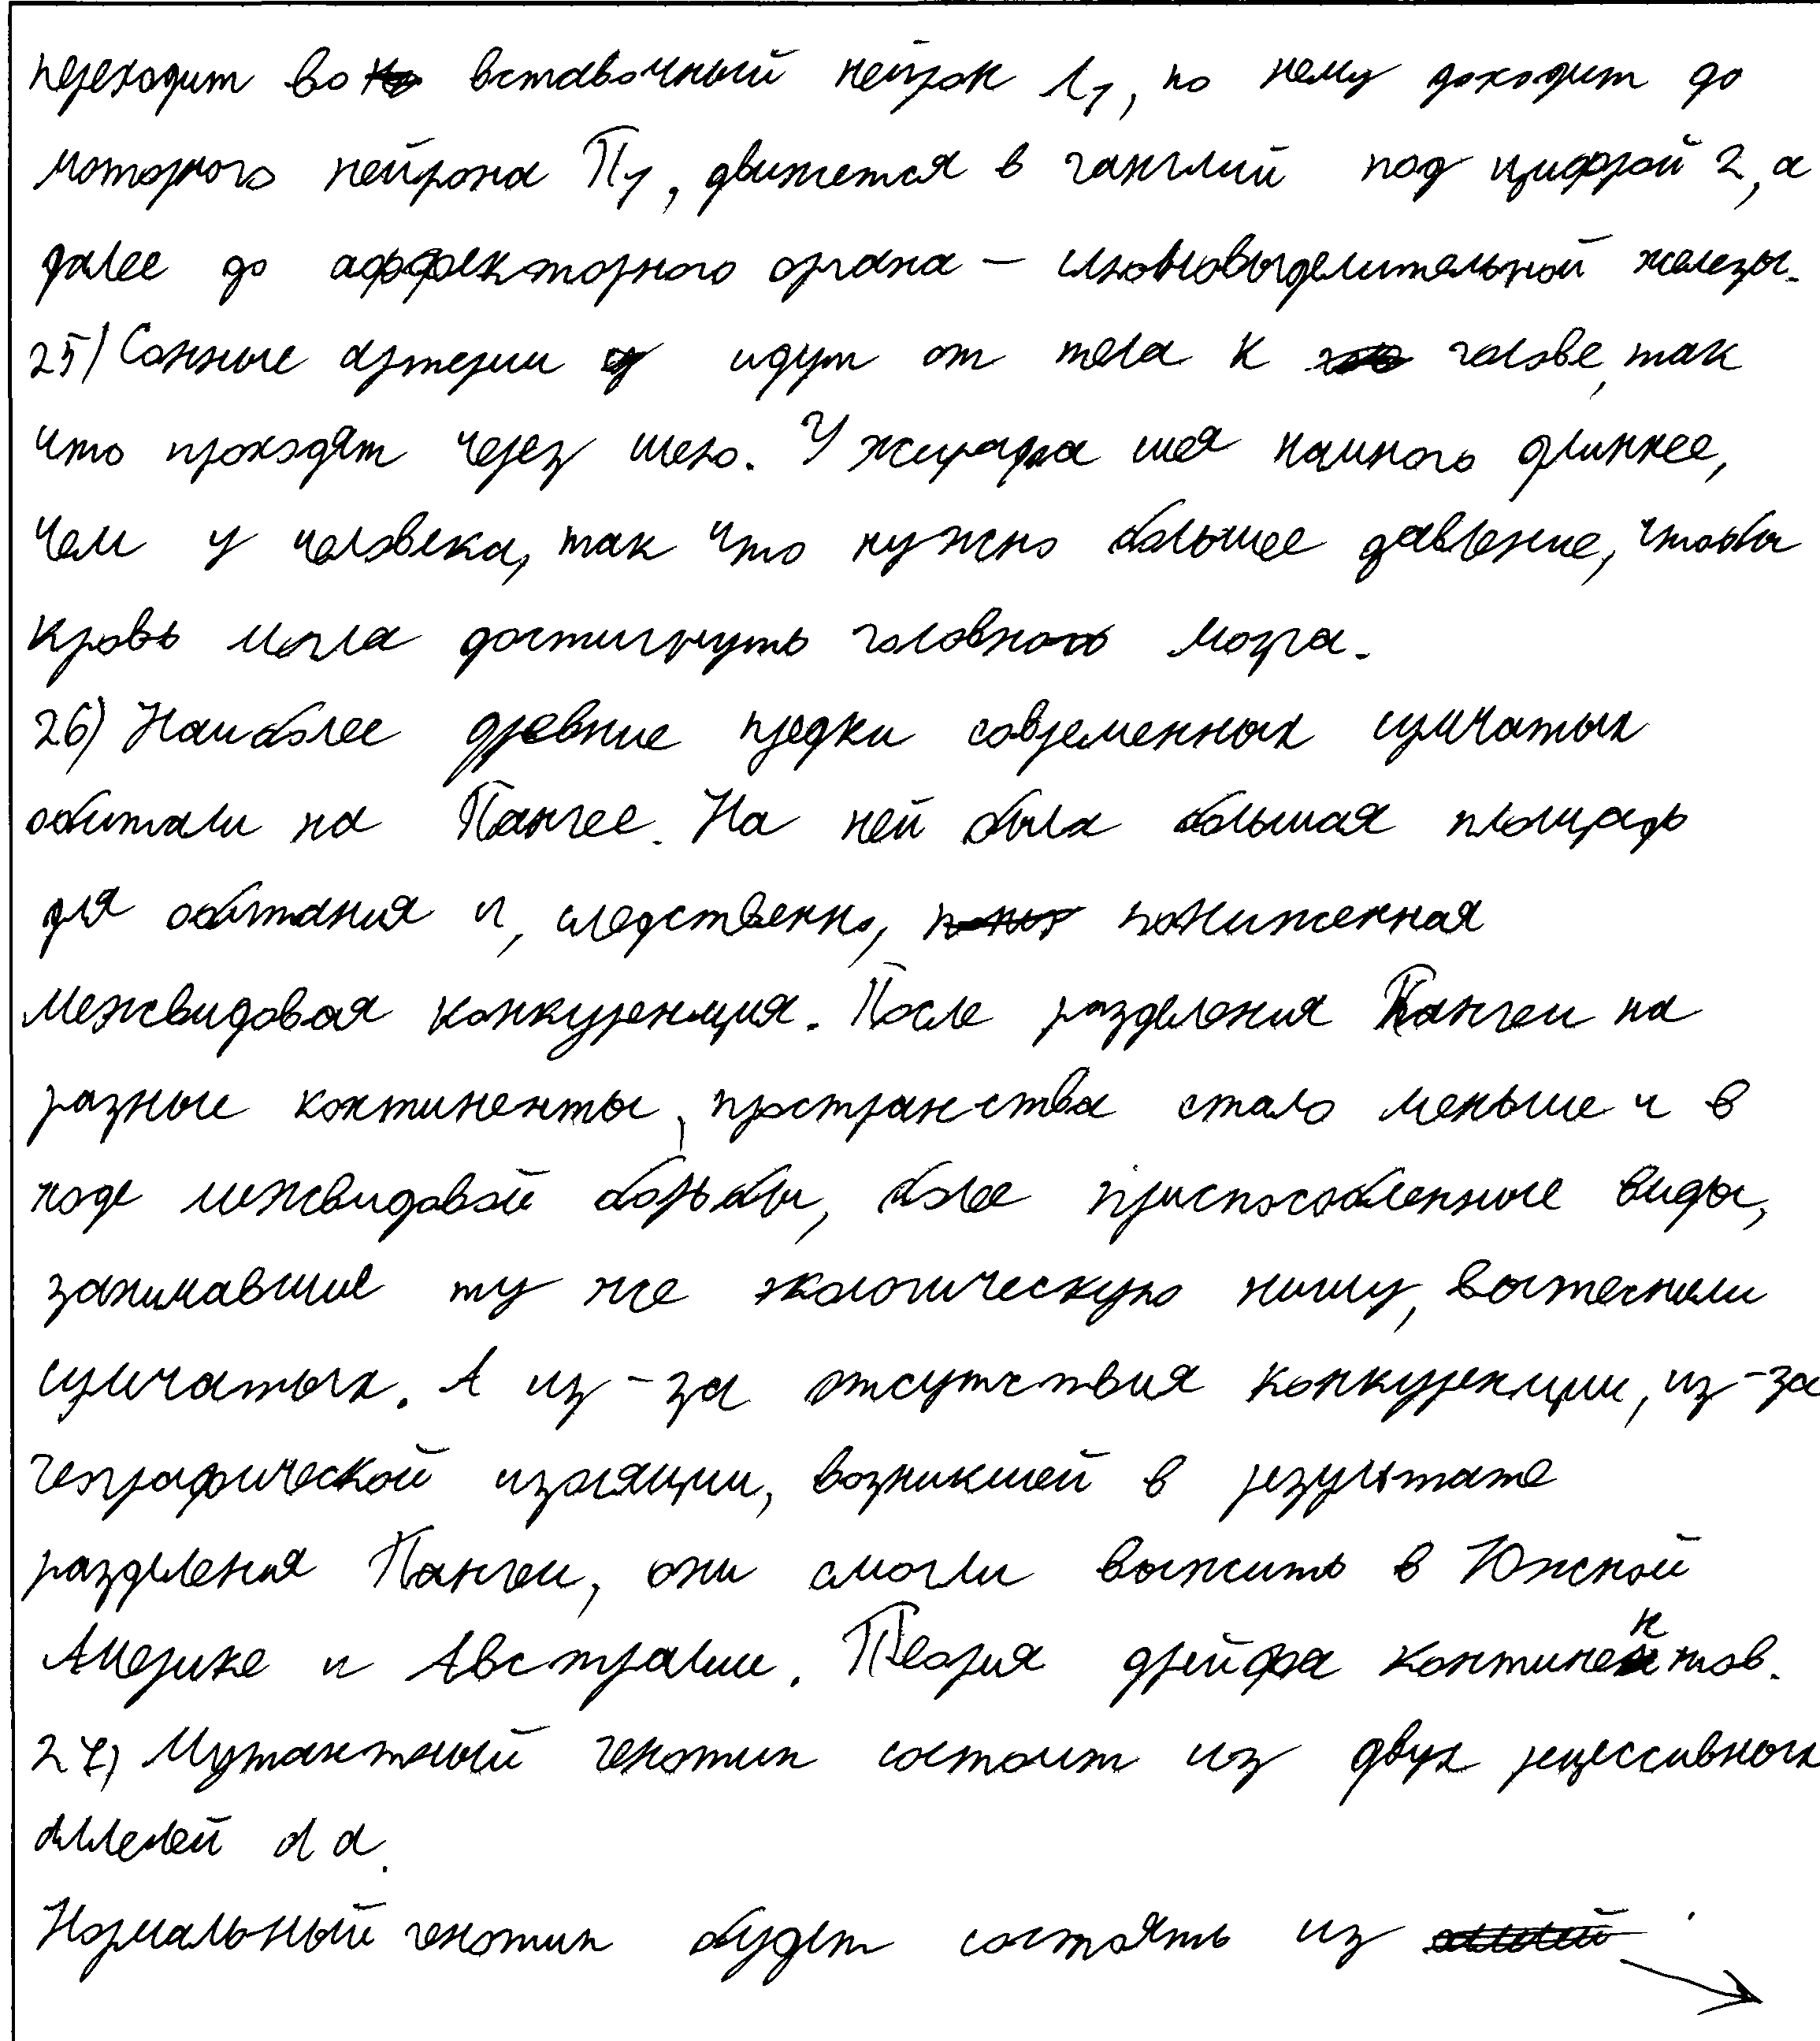 переходит во вставочный нейрон Л1, по нему доходит до
моторного нейрона П1, движется в ганглий под цифрой 2, а
далее до аффекторного органа – слюновыделительной железы.
25) Сонные артерии идут от тела к голове, так
что проходят через шею. У жирафа шея намного длиннее,
чем у человека, так что нужно большее давление, чтобы
кровь могла достигнуть головного мозга.
26) Наиболее древние предки современных сумчатых
обитали на Пангее. На ней была большая площадь
для обитания и, следственно, пониженная
межвидовая конкуренция. После разделения Пангеи на
разные континенты, пространства стало меньше и в
ходе межвидовой борьбы, более приспособленные виды,
занимавшие ту же экологическую нишу, вытеснили
сумчатых. А из-за отсутствия конкуренции, из-за
географической изоляции, возникшей в результате
разделения Пангеи, они смогли выжить в Южной
Америке и Австралии. Теория дрейфа континентов.
27) Мутантный генотип состоит из двух рецессивных
аллелей а а.
Нормальный генотип будет состоять из